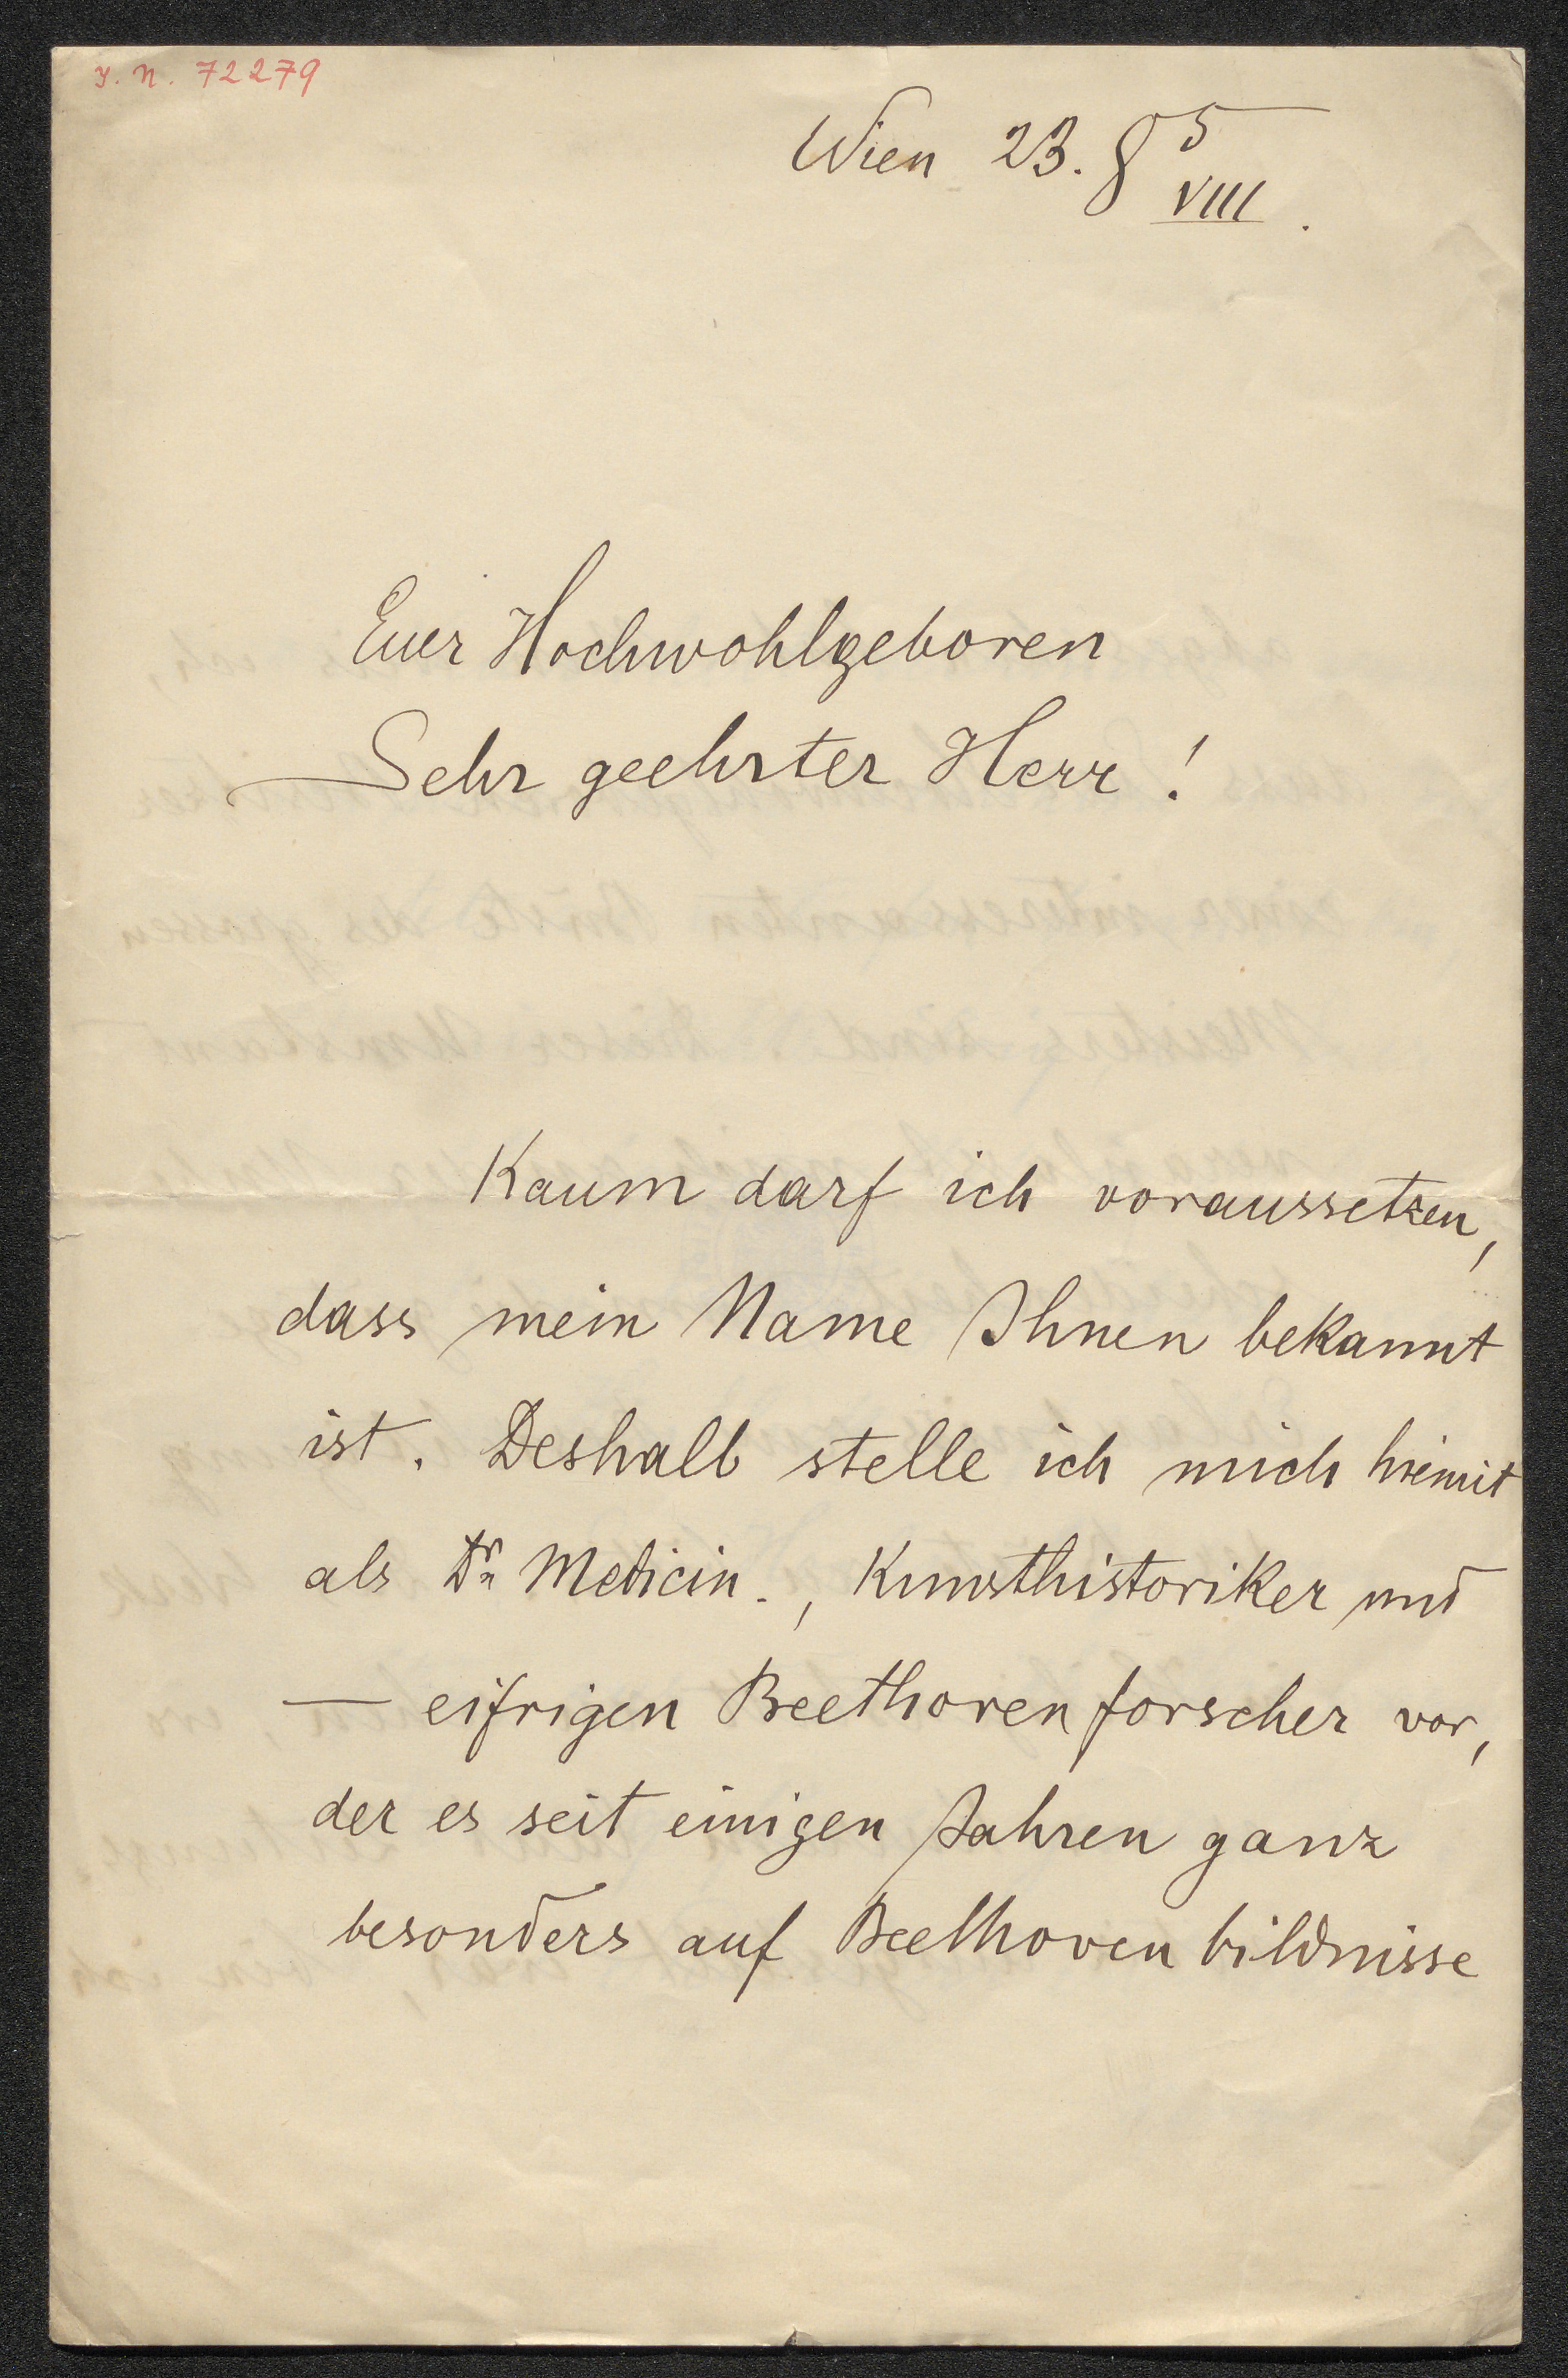 J. N. 72279
Wien 23. 85
VIII.
Euer Hochwohlgeboren
Sehr geehrter Herr!
Kaum darf ich voraussetzen,
dass mein Name Ihnen bekannt
ist. Deshalb stelle ich mich hiemit
als Dr Medicin., Kunsthistoriker und
— eifrigen Beethovenforscher vor,
der es seit einigen Jahren ganz
besonders auf Beethovenbildnisse